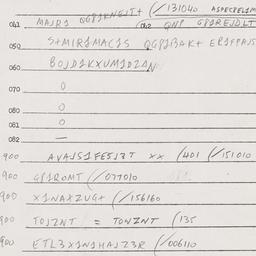 041 MAJR1 QGP1KNEJT+ (/131040 ASPECRE1M
042 QNP GP1REJDLT
050 S+MIR1MAC1S QGP1BAK+ ER1FPAJS
060 BOJD1KXUM1DZAN
070 0
080 0
081 0
082 —
900 AVAJS1FE5J3T XX (401 (/151010
900 GP1ROMT (/077010
900 X1NAXZUG+ (/156160
900 TOJZNT = TONZNT (135
900 ETL3X1N1HAJZ3R (/006110